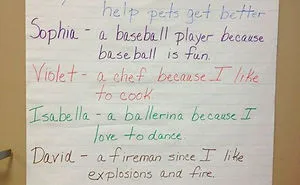 help pets get better
Sophia - a baseball player because
baseball is fun.
Violet - a chef because I like
to cook
Isabella - a ballerina because I
love to dance.
David - a fireman since I like
explosions and fire.